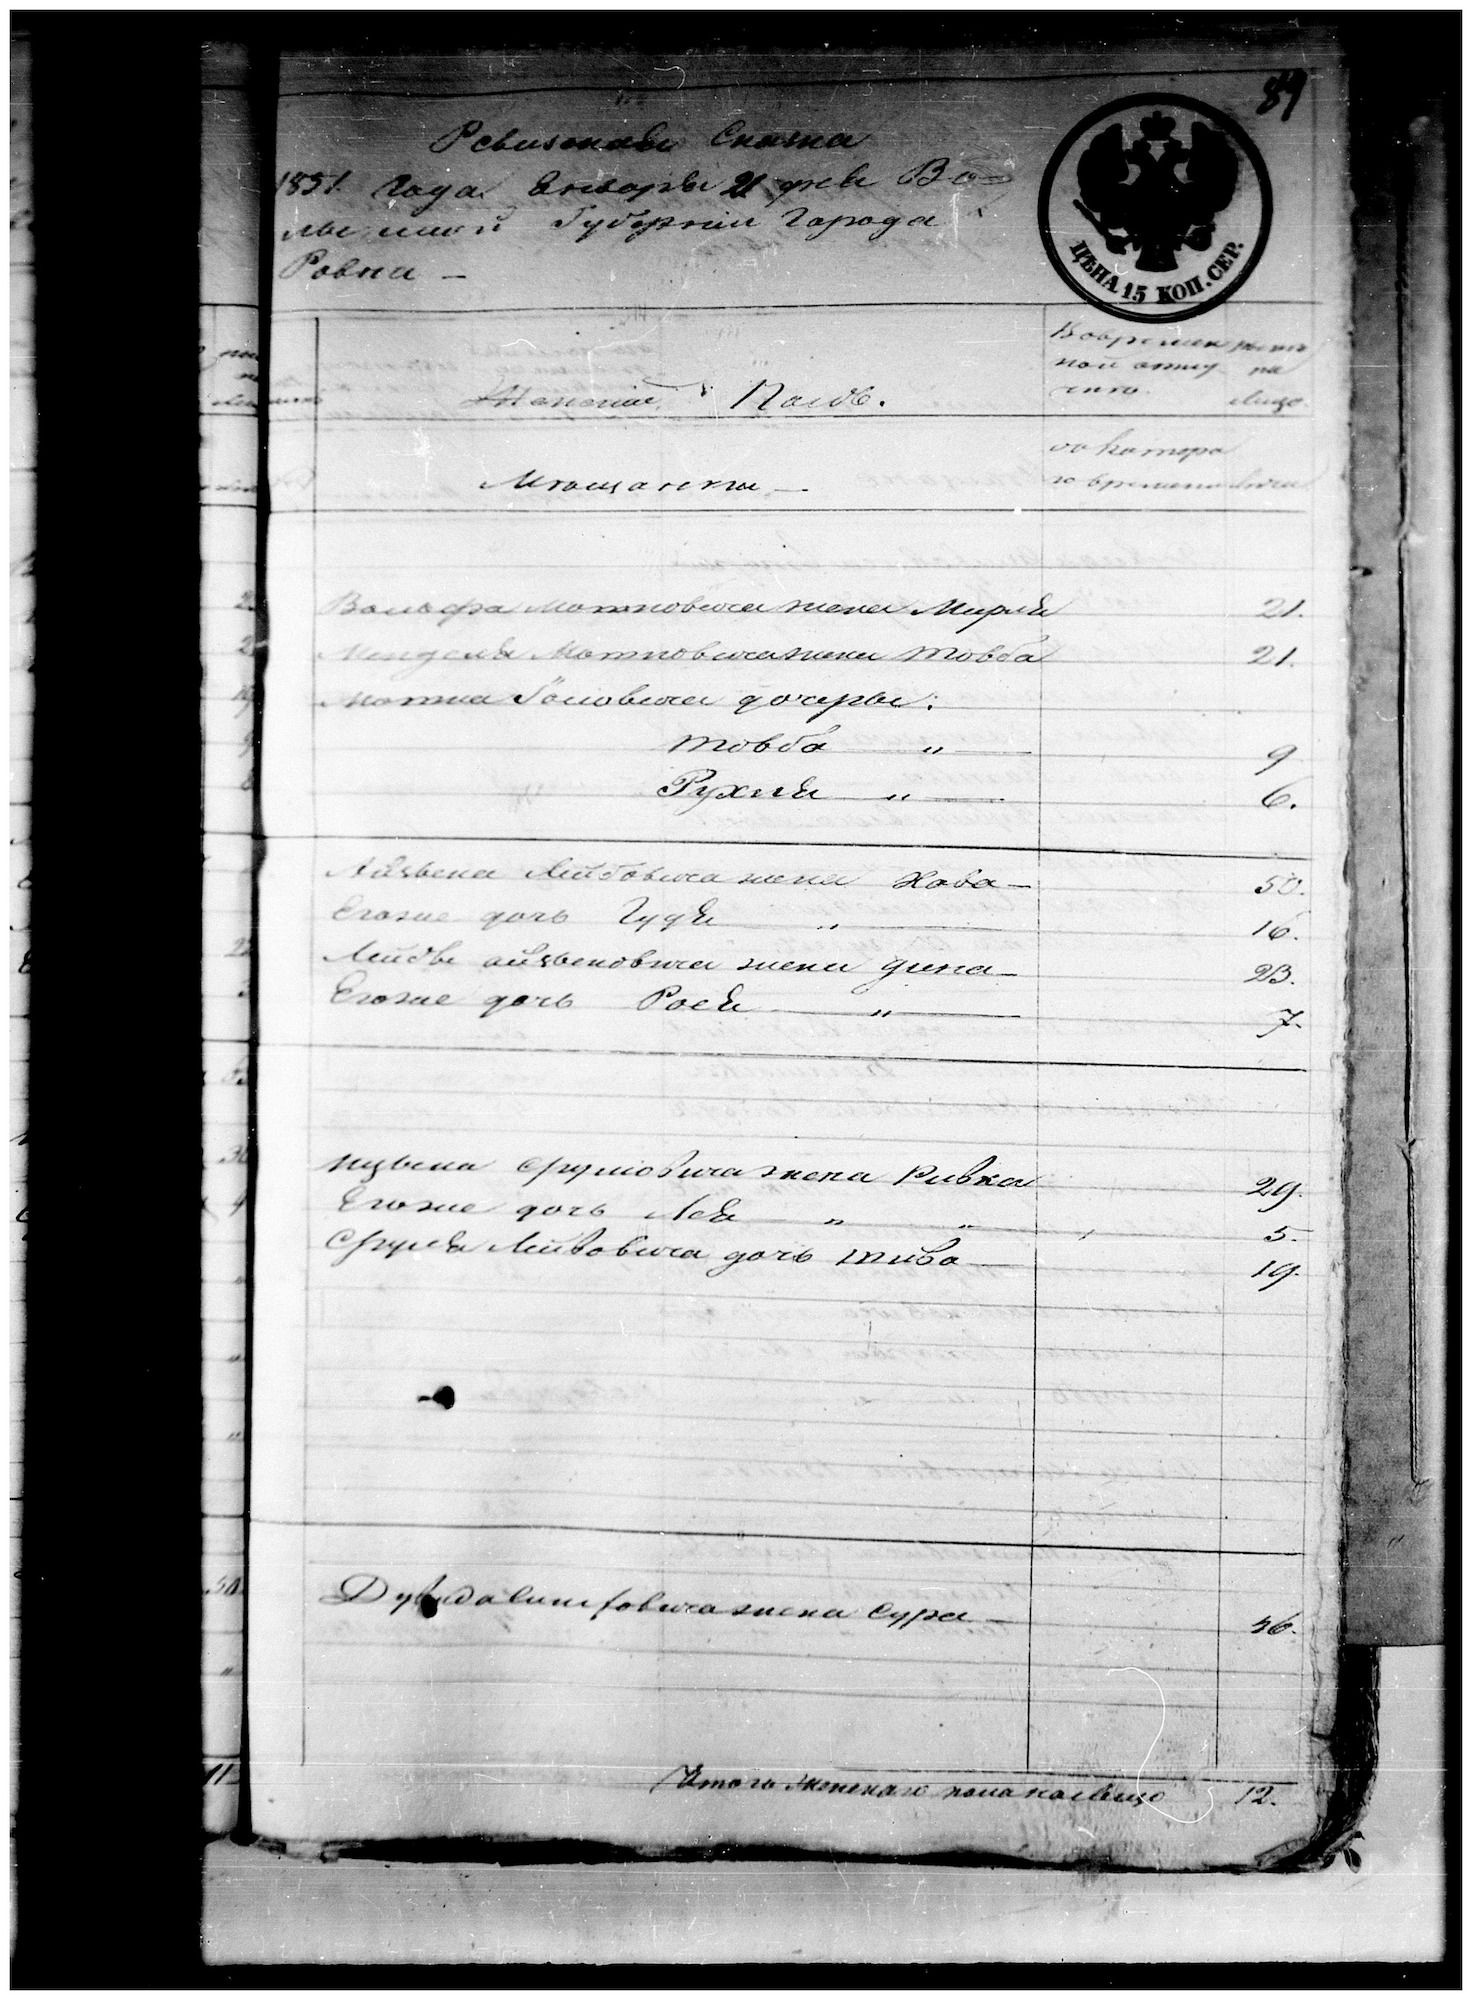 89
Ревизская Сказка
1851. Года Января 21 дня Во-
лынской Губернии Города
Ровни -
ЦѢНА 15 КОП. СЕР.
Женский Полъ.
Во временной отлу-
чке
на лицо
Мещански -
съ котора
го времени
Вольфа Мотковича жена Мирля 21.
Менделя Мотковича жена Товба 21.
Мотка дочеры:
Товба " 9
Рухля " 6.
Лейбовича жена Хава - 50.
Егоже дочь Гудя " 16.
Лейбы жена Дина - 23.
Егоже дочь Рося " 7.
Срулювича жена Ривка 29.
Егоже дочь Лея " " 5.
Сруля Лейбовича дочь Тиво 19.
жена Сура - 46.
Итого женскаго пола на лицо 12.